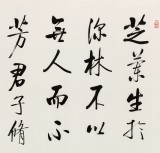 芝兰生於
深林不以
無人而不
芳君子脩